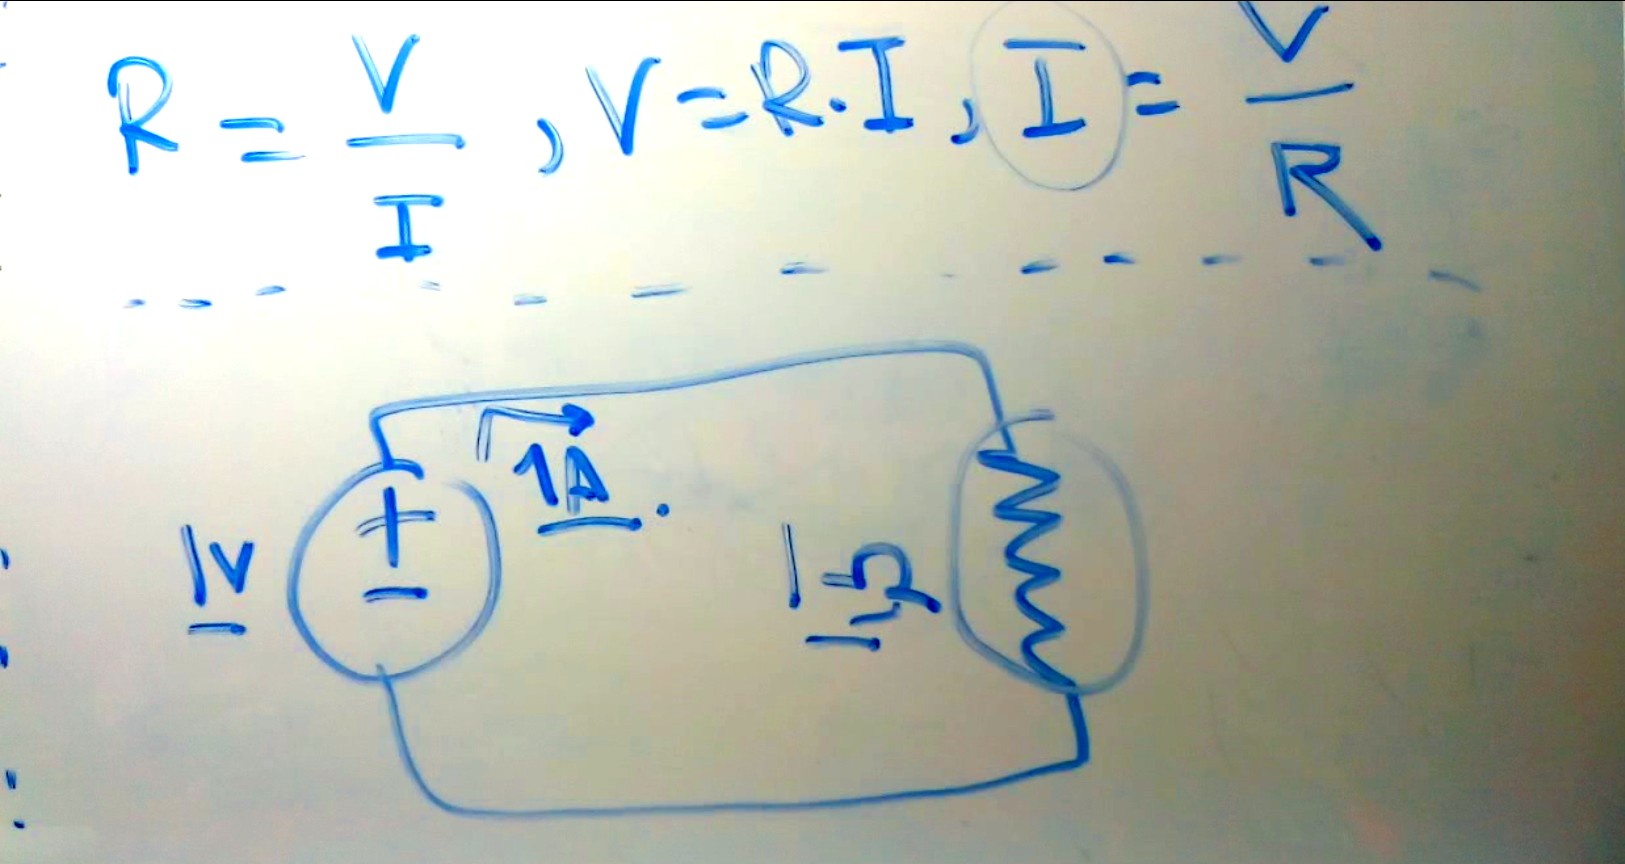 R = V/I , V = R.I , I = V/R
1A.
1V
+
-
1Ω